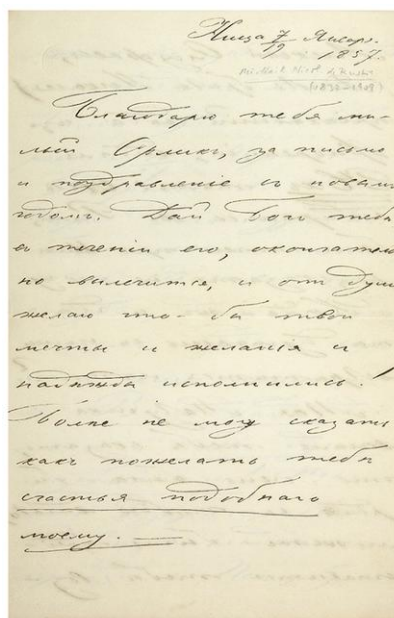 Ницца 7/19 Января.
1857.
(1832-1909)
Благодарю тебя ми-
лый Орликъ, за письмо
и поздравленіе съ новымъ
годомъ. Дай Богъ тебѣ
въ теченіи его, окончатель
но вылечится, и отъ души
желаю что-бы твои
мечты и желанья и
надѣжды исполнились!
Болѣе не могу сказать
какъ пожелать тебѣ
счастья подобнаго
моему.